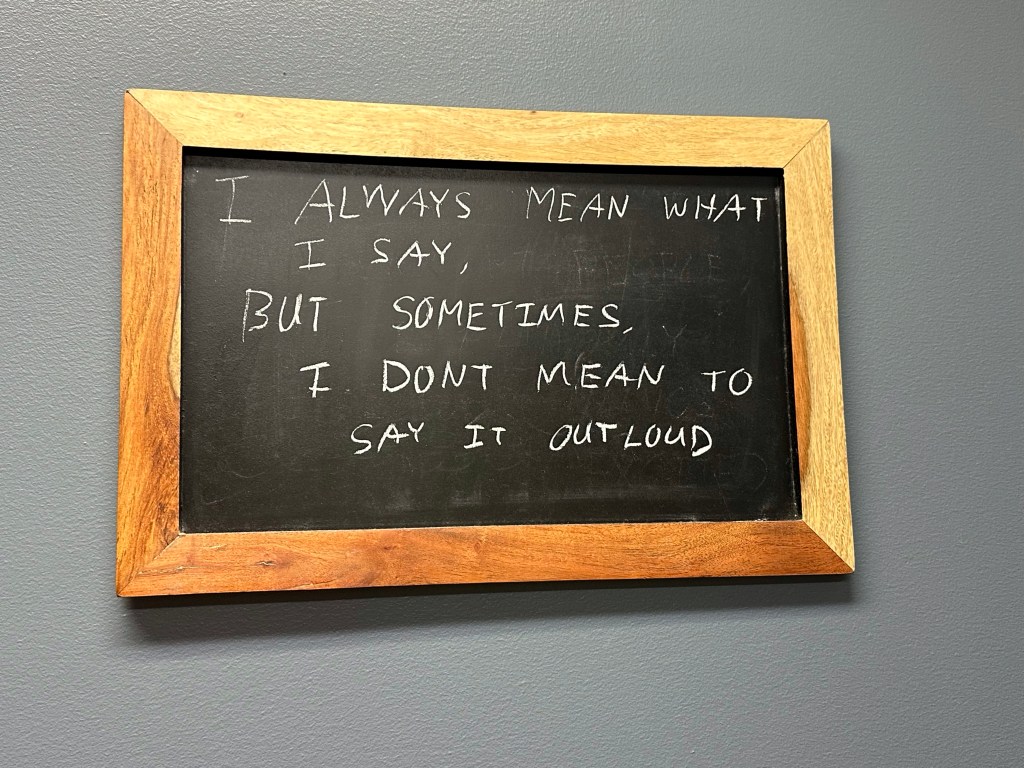 I ALWAYS MEAN WHAT
I SAY,
BUT SOMETIMES,
I DONT MEAN TO
SAY IT OUTLOUD